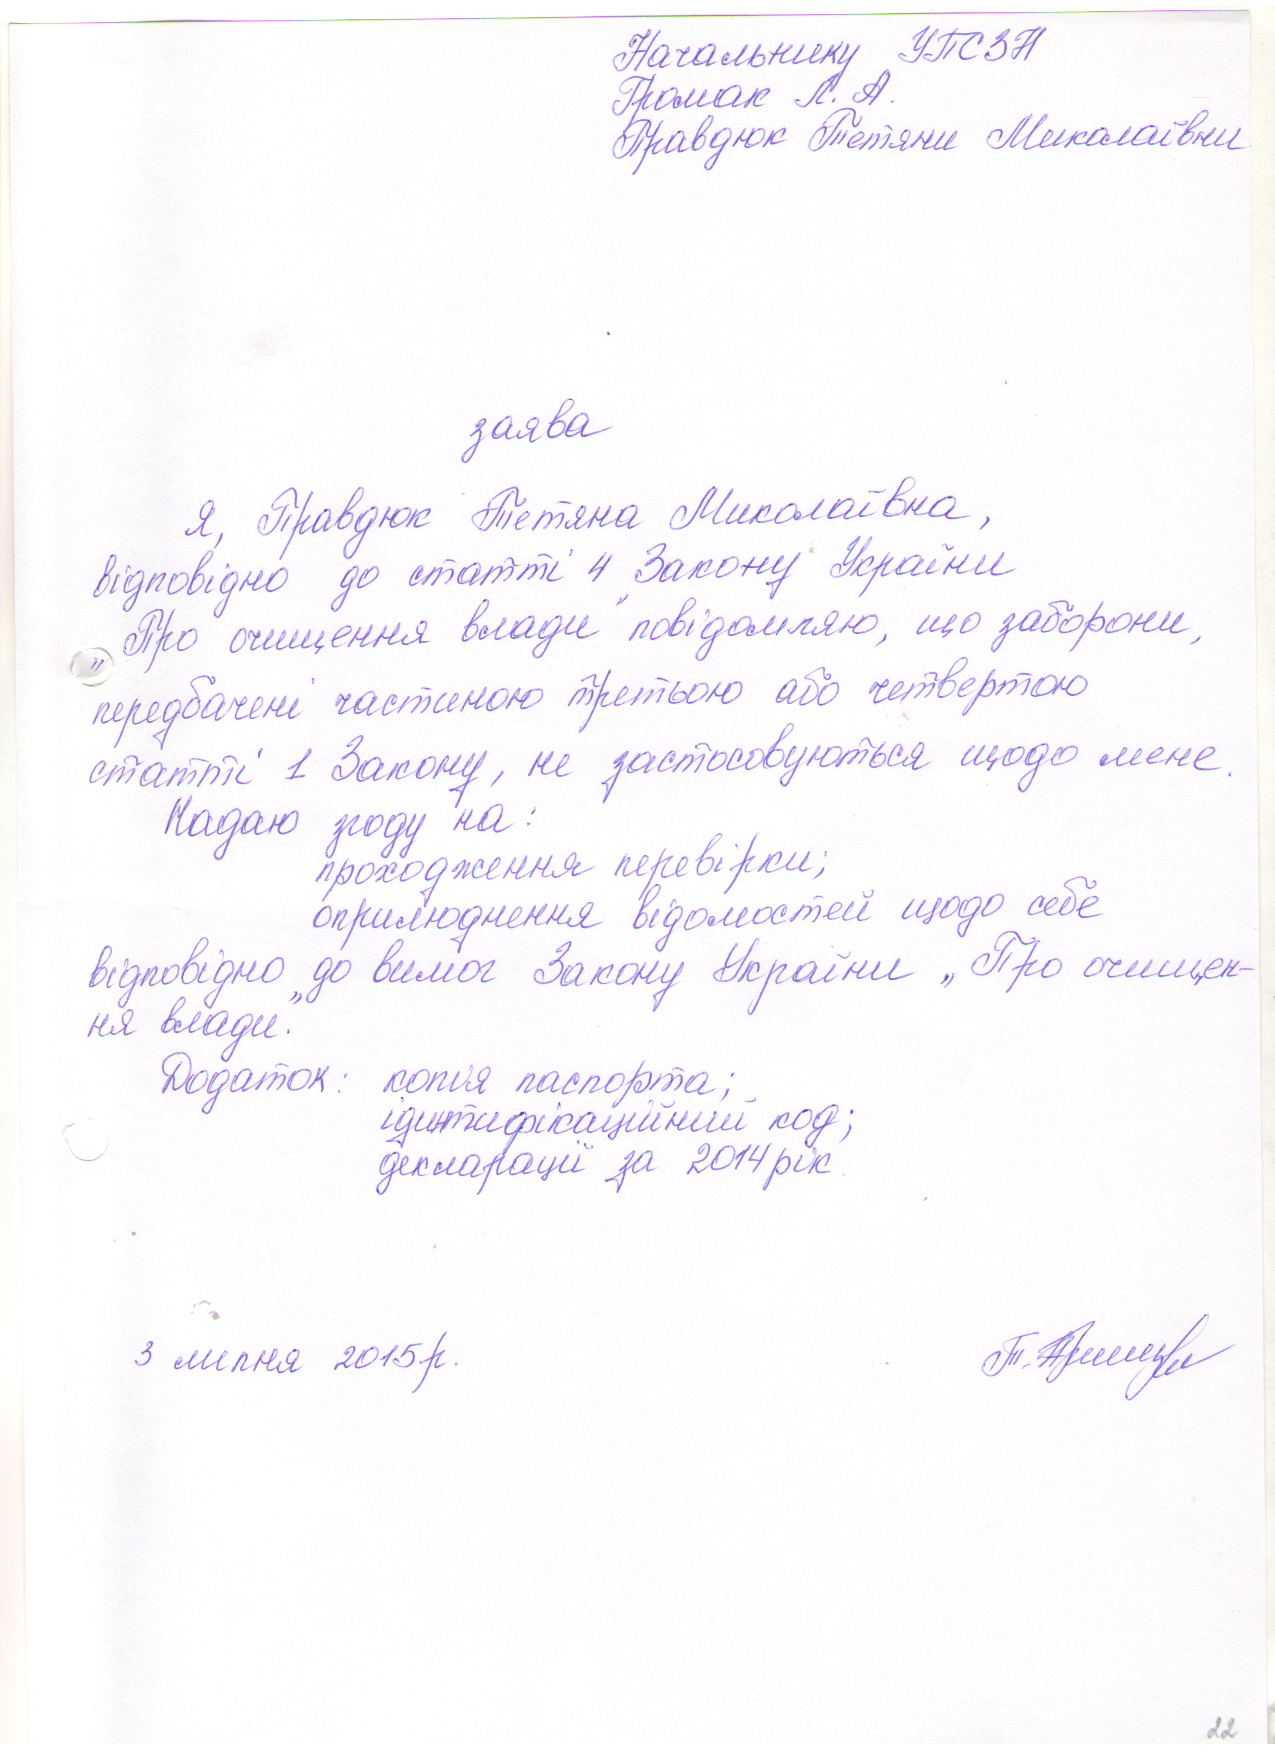 Начальнику УПСЗН
Громак Л. А.
Правдюк Тетяни Миколаївни
заява
Я, Правдюк Тетяна Миколаївна,
відповідно до статті 4 Закону України
„Про очищення влади" повідомляю, що заборони,
передбачені частиною третьою або четвертою
статті 1 Закону, не застосовуються щодо мене.
Надаю згоду на:
проходження перевірки;
оприлюднення відомостей щодо себе
відповідно до вимог Закону України „Про очищен-
ня влади".
Додаток: копія паспорта;
ідинтифікаційний код;
декларації за 2014 рік.
3 липня 2015 р.
Т.
22